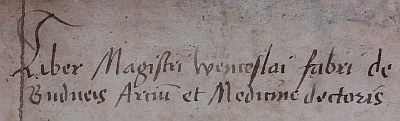 Liber Magistri wenceslai fabri de
Budweis Arciū et Medicine doctoris